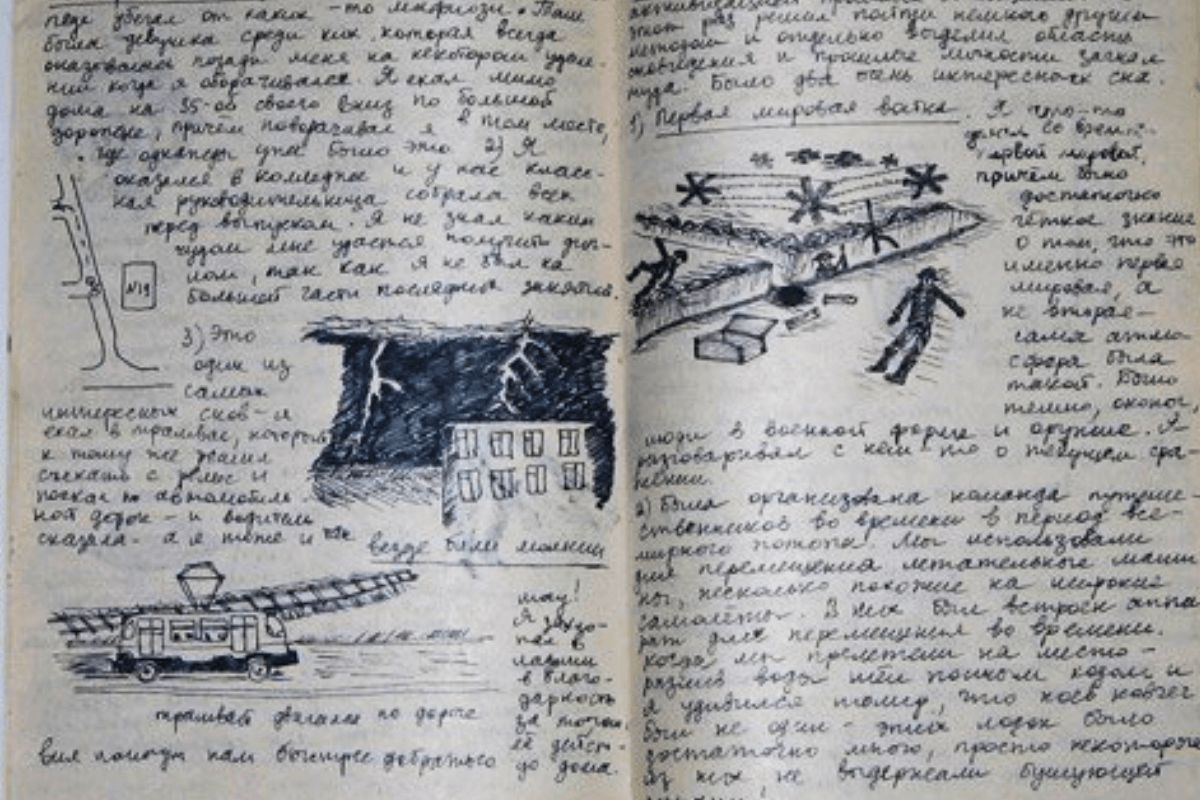 убегал от каких-то мафиози. Там
была девушка среди них которая всегда
оказывалась позади меня на некотором удале-
нии когда я оборачивался. Я ехал мимо
дома на 35-ой своего вниз по большой
дорожке, причём поворачивал я в том месте,
где однажды уже было это 2) Я
оказался в колледже и у нас клас-
ная руководительница собрала всех
перед выпуском. Я не знал каким
чудом мне удастся получить дип-
лом, так как я не был на
большей части последних занятий.
N19
3) Это
один из
самых
интересных снов - я
ехал в трамвае, который
к тому же решил
съехать с рельс и
поехал по автомобиль-
ной дороге - и водитель
сказала - а я тоже и
везде были молнии
трамвай двигался по дороге
мау!
Я захло-
пал в
ладоши
в благо-
дарность
за то
её дейст-
вия помогут нам быстрее добраться до дома.
этот раз решил пойти немного другим
методом и отдельно выделил области
сновидения и прошлые личности
Было два очень интересных сна.
1) Первая мировая война. Я что-то
со времён
первой мировой,
причём было
достаточно
чёткое знание
о том, что это
именно первая
мировая, а
не вторая -
сама атмо-
сфера была
такой. Было
темно, окопы,
люди в военной форме и оружие. Я
разговаривал с кем-то о текущем сра-
жении.
2) Была организована команда путеше-
ственников во времени в период все-
мирного потопа. Мы использовали
для перемещения летательные маши-
ны, несколько похожие на широкие
самолёты. В них был встроен аппа-
рат для перемещения во времени.
Когда мы прилетели на место -
разлив воды шёл полным ходом и
я удивился тому, что ноев ковчег
был не один - этих лодок было
достаточно много, просто некоторые
из них не выдержали бушующей